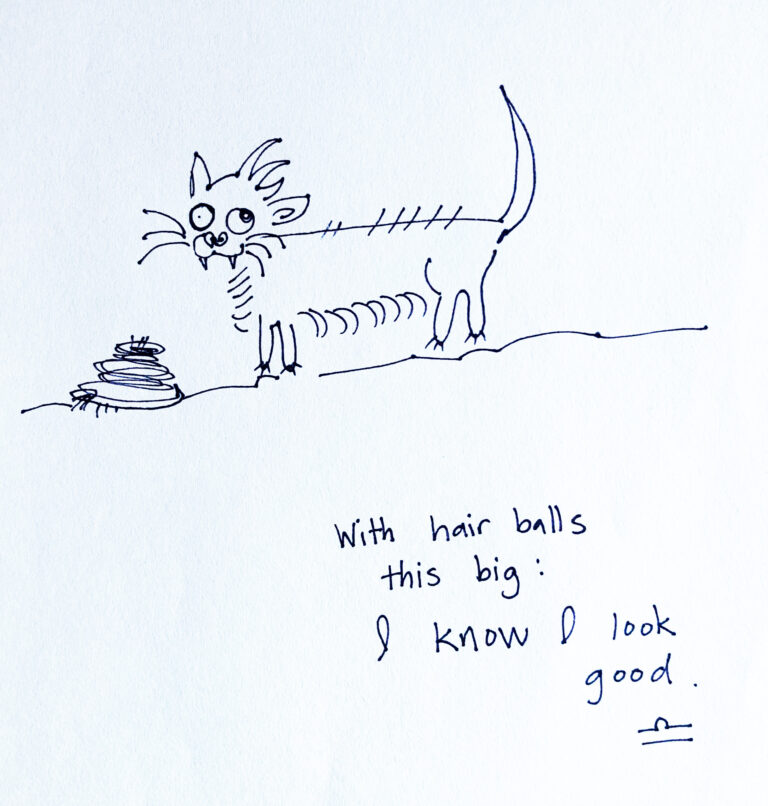 With hair balls
this big:
I know I look
good.
♎